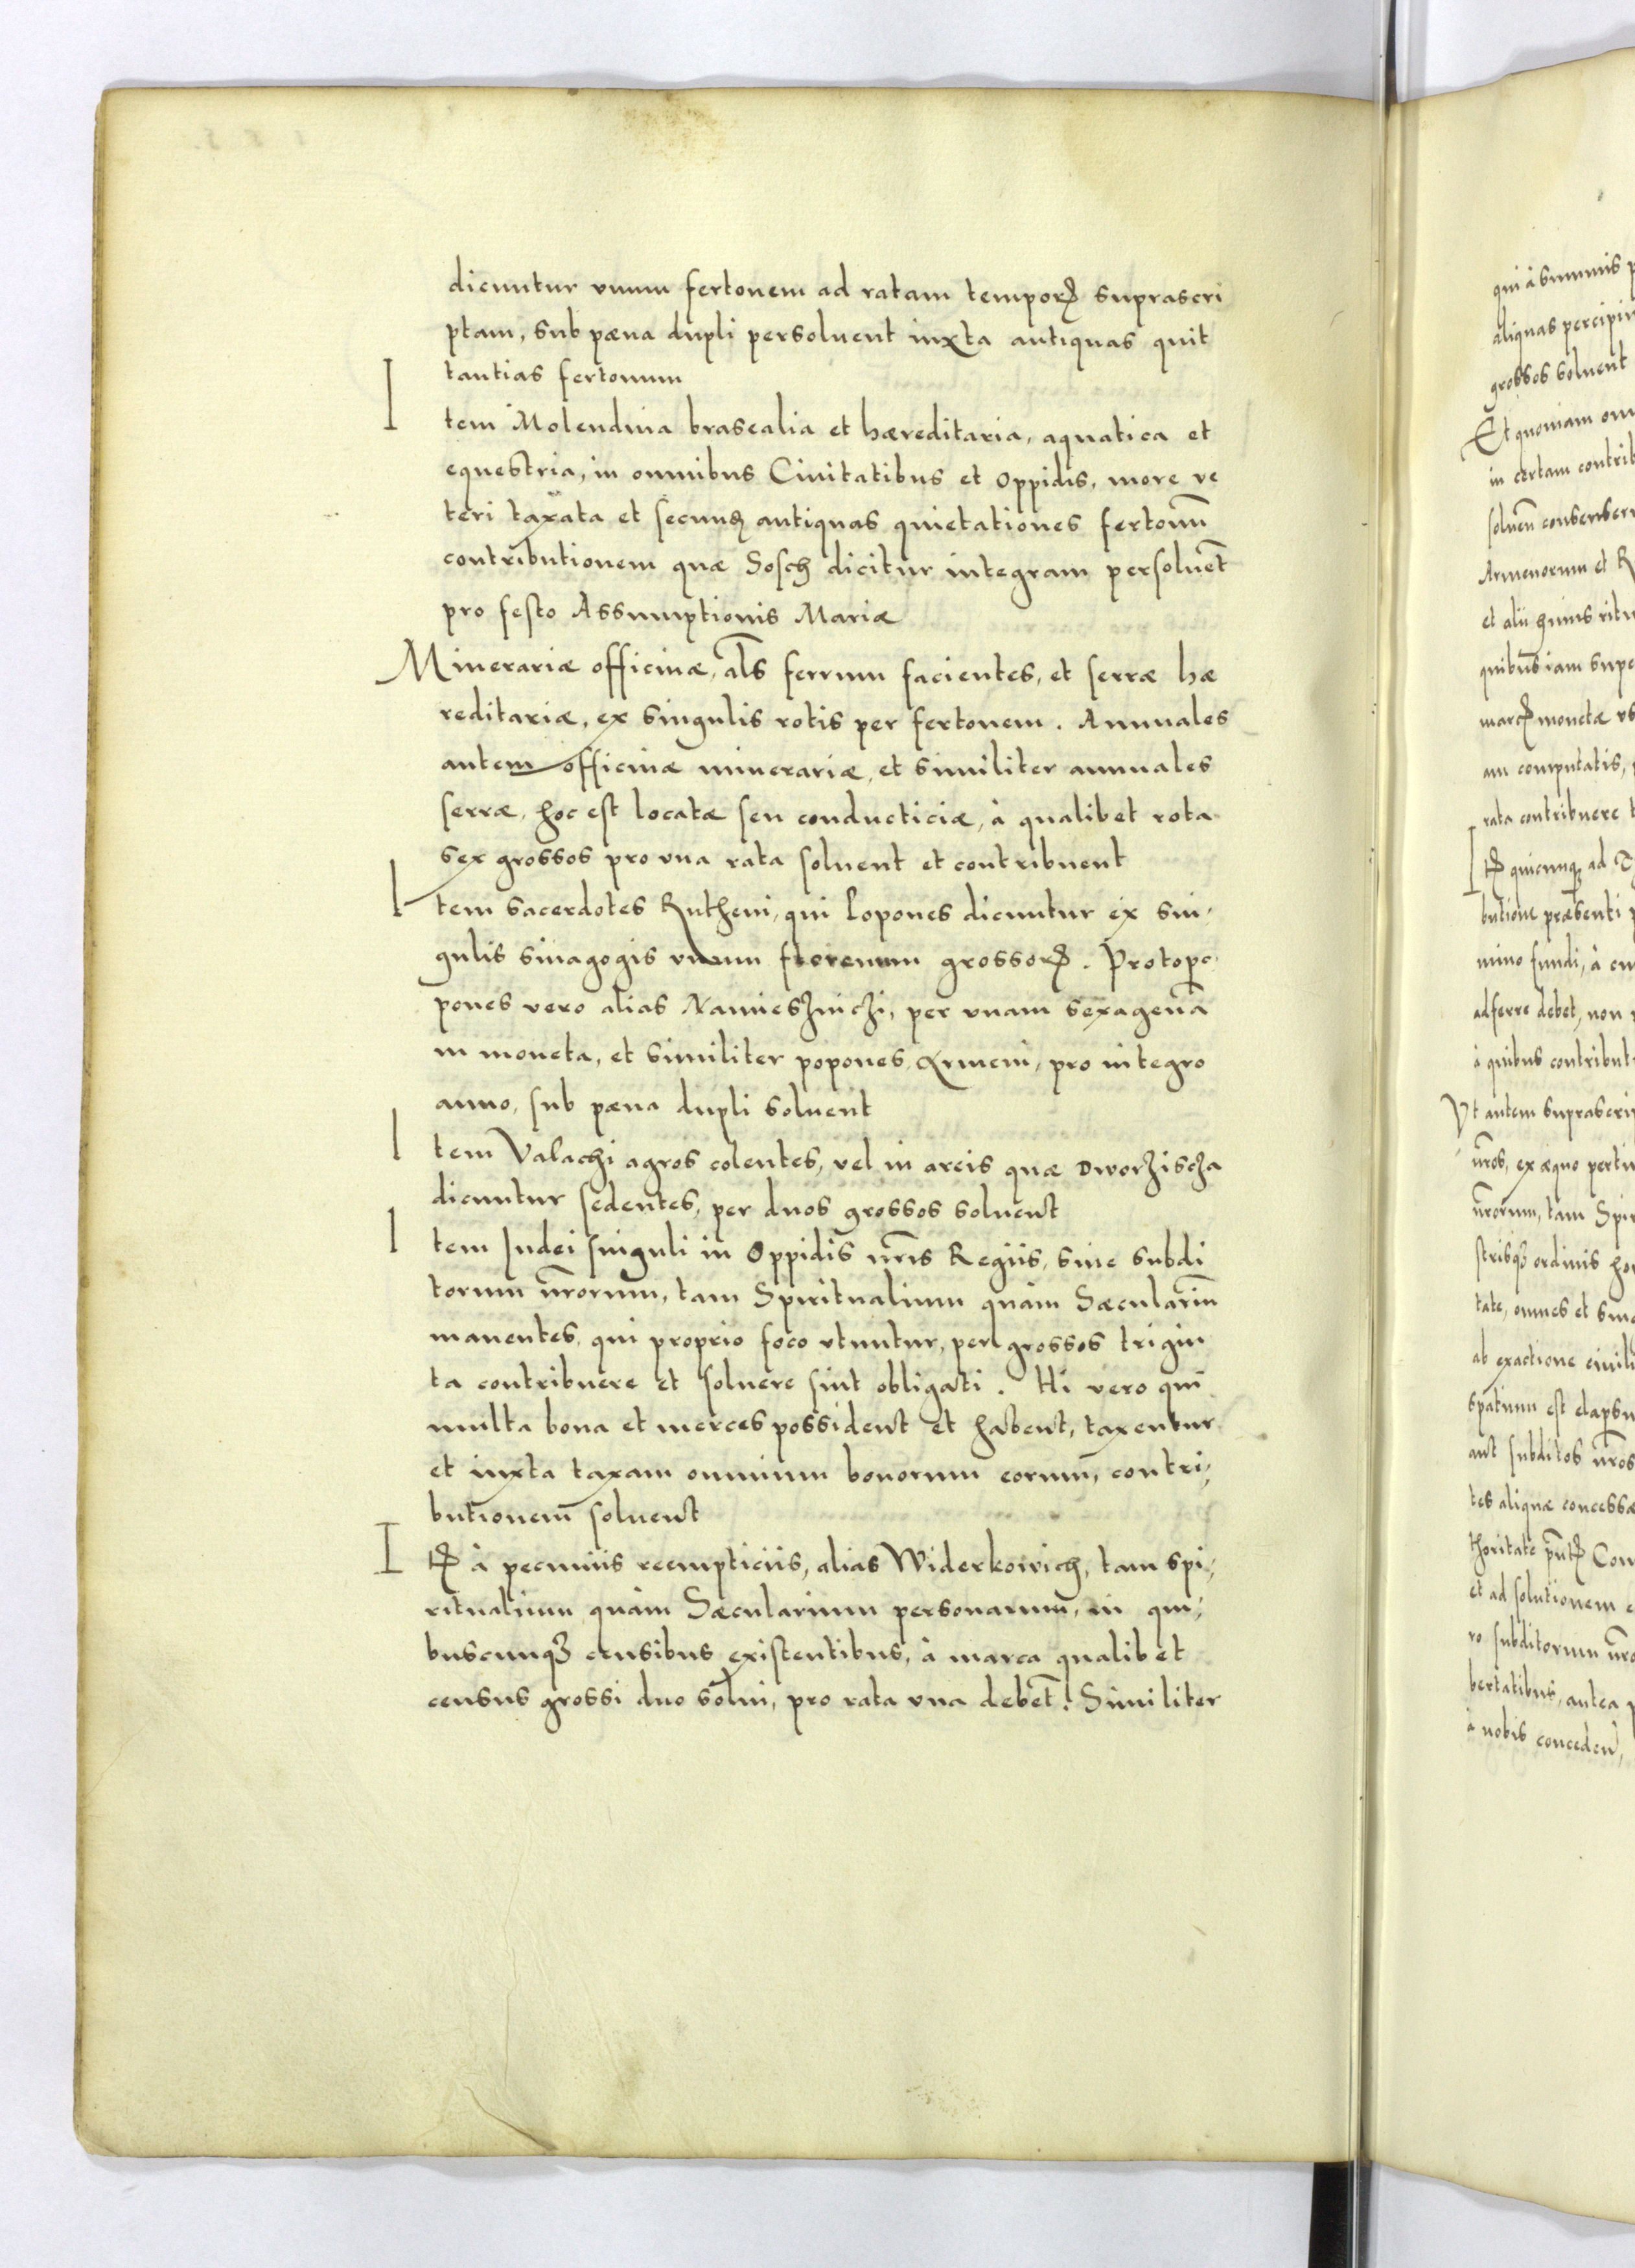 dicuntur vnum fertonem ad ratam temporꝝ suprascri
ptam, sub pæna dupli persoluent iuxta antiquas quit
tantias fertonum
Item Molendina brasealia et hæreditaria, aquatica et
equestria, in omnibus Ciuitatibus et Oppidis, more ve
teri taxata et secunꝫ antiquas quietationes fertonū
contributionem quæ Sosch dicitur integram persoluēt
pro festo Assumptionis Mariæ
Minerariæ officinæ, al̄s ferrum facientes, et serræ hæ
reditariæ, ex singulis rotis per fertonem. Annuales
autem officinæ minerariæ, et similiter annuales
serræ, hoc est locatæ seu conducticiæ, à qualibet rota
sex grossos pro vna rata soluent et contribuent
Item sacerdotes Rutheni, qui Popones dicuntur ex sin,
gulis sinagogis vnum florenum grossoꝝ. Protopo
pones vero alias Namieszniczi, per vnam sexagenā
in moneta, et similiter popones Armeni, pro integro
anno, sub pæna dupli soluent
Item Valachi agros colentes, vel in areis quæ Dworziscza
dicuntur sedentes, per duos grossos soluent
Item Iudei singuli in Oppidis nr̄is Regiis, siue subdi
torum nr̄orum, tam Spiritualium quàm Sæculariū
manentes, qui proprio foco vtuntur, per grossos trigin
ta contribuere et soluere sint obligati. Hi vero qui
multa bona et merces possident et habent, taxentur
et iuxta taxam omnium bonorum eorum, contri,
butionem soluent
Itꝫ à pecuniis reempticiis, alias Widerkowich, tam spi,
ritualium quàm Sæcularium personarum, in qui,
buscunqꝫ censibus existentibus, à marca qualibet
census grossi duo solui, pro rata vna debēt. Similiter
qui à summis
aliquas percipiu
grossos soluent
Et quoniam om
in certam contrib
Armenorum et R
et alii huius ritu
quibus iam supe
marcꝫ monetæ vs
am computatis,
rata contribuere t
Itꝫ quicunqꝫ ad
butione præsenti p
nino fundi, à cu
adferre debet, non
à quibus contribut
Vt autem suprascri
nr̄os, ex æquo pertin
nr̄orum, tam Spir
strisqꝫ ordinis ho
tate, omnes et sing
ab exactione ciuili
spatium est elapsu
aut subditos nr̄os
tes aliquæ concessæ
thoritate pn̄tꝫ Con
et ad solutionem e
ro subditorum nr̄o
bertatibus, antea
à nobis conceden̄,